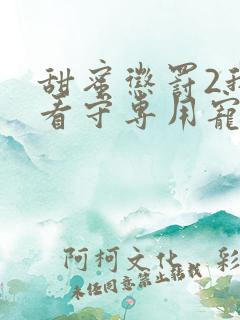 甜蜜懲罰2我
看守専用寵
阿柯文化 彩
未经同意禁止转载